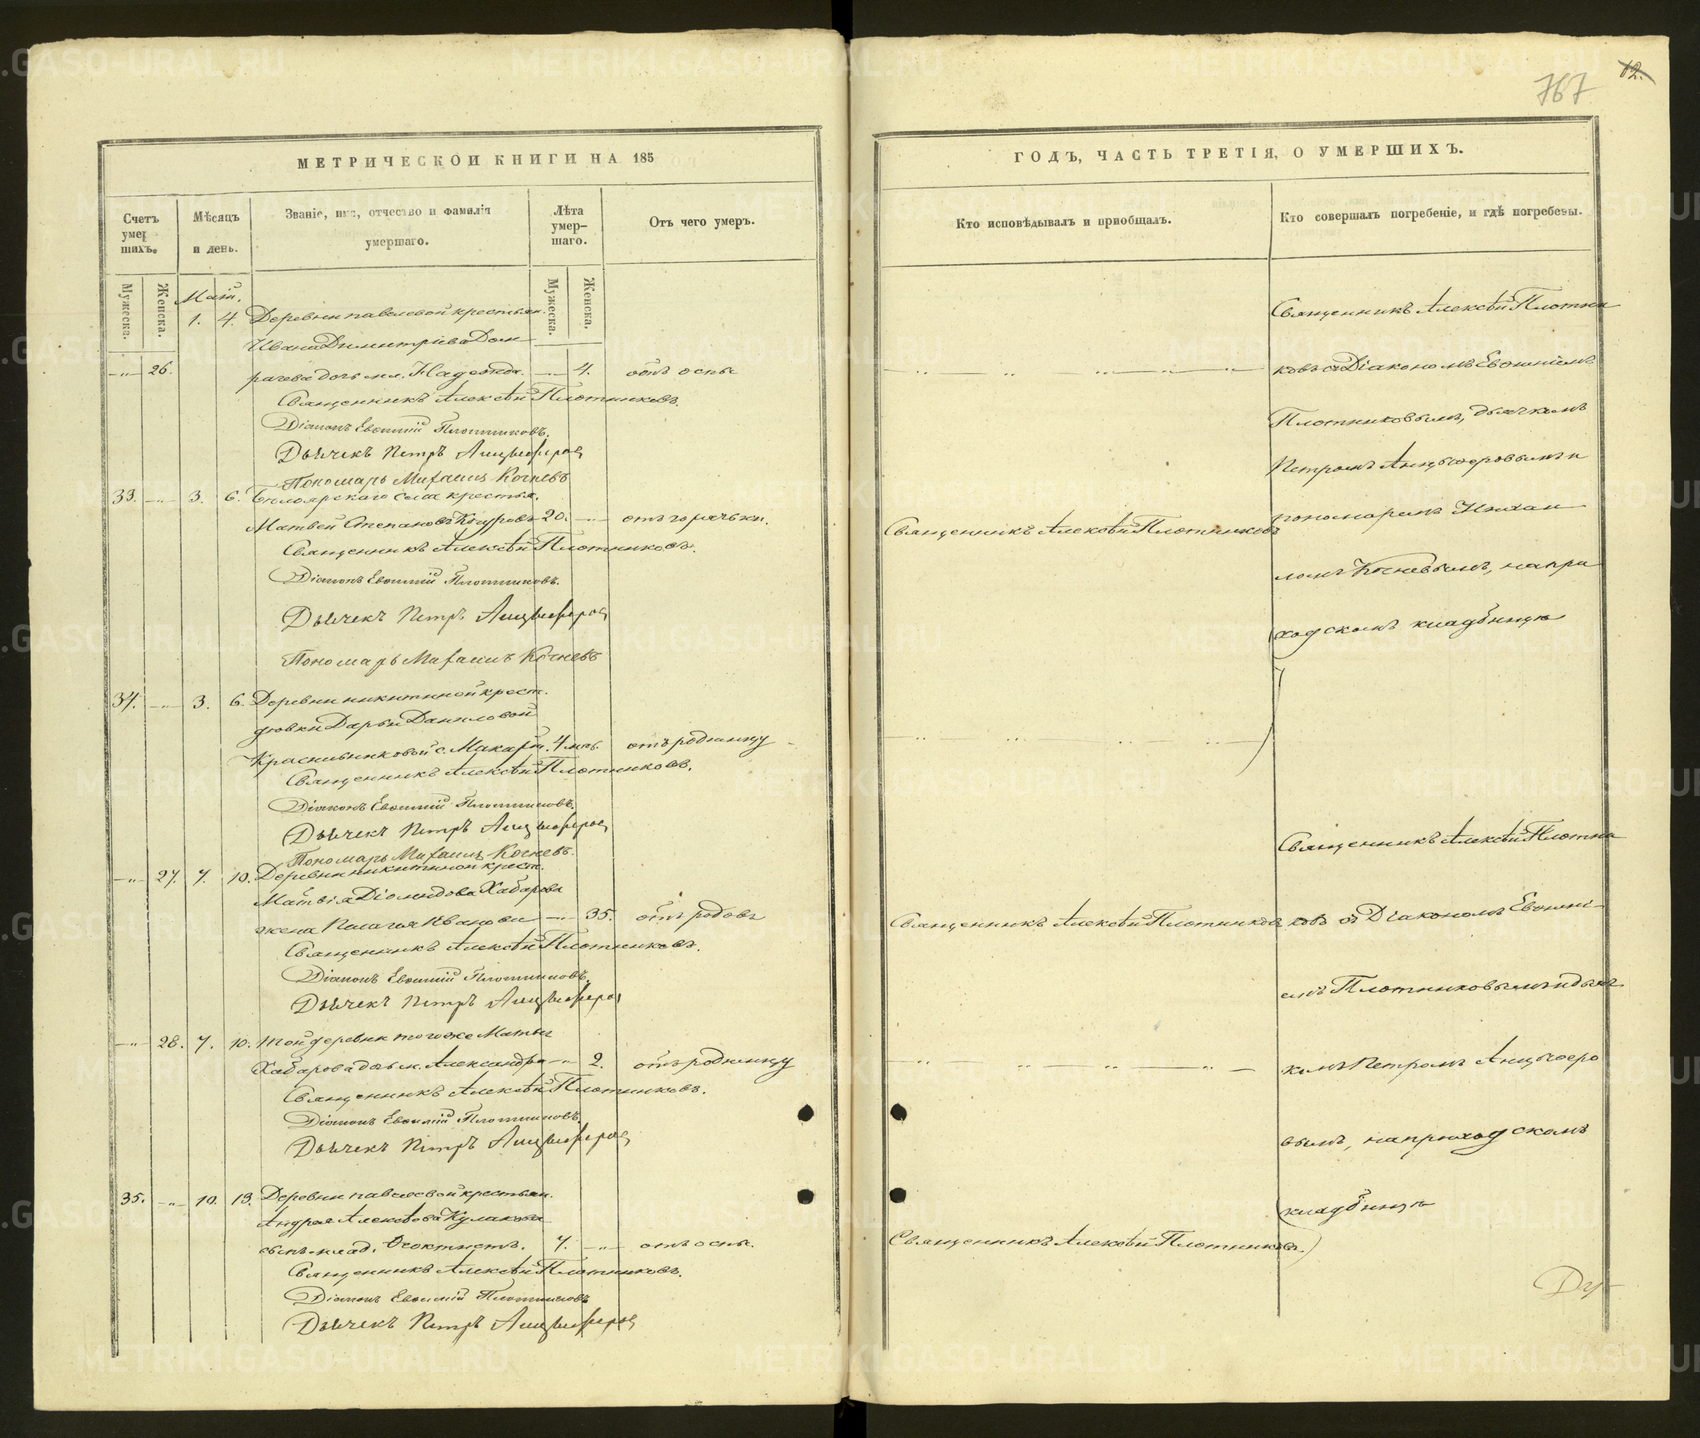 МЕТРИЧЕСКОЙ КНИГИ НА 185
Счетъ умершихъ.
Мѣсяцъ и день.
Званіе, имя, отчество и фамилія умершаго.
Лѣта умершаго.
Отъ чего умеръ.
Мужеска.
Женска.
Мужеска.
Женска.
Маій.
1. 4. Деревни павловой крестьян.
Ивана Димитріева Дом
-"- 26. рачева дочь мл. Надежда. -"- 4. отъ оспы
Священникъ Алексѣй Плотниковъ.
Діаконъ Евѳимій Плотниковъ.
Дьячекъ Петръ Анцыферов
Пономарь Михаилъ Кочневъ
33. -"- 3. 6. Бѣлоярскаго села крестья.
Матвей Степановъ 20. -"- отъ горячьки.
Священникъ Алексѣй Плотниковъ.
Діаконъ Евѳимій Плотниковъ.
Дьячекъ Петръ Анцыферов
Пономарь Михаилъ Кочневъ
34. -"- 3. 6. Деревни никитиной крест.
дѣвки Дарьи Даниловой
Красильниковой с. Макарій. 4 мѣс. отъ родимцу
Священникъ Алексѣй Плотниковъ.
Діаконъ Евѳимій Плотниковъ.
Дьячекъ Петръ Анцыферов
Пономарь Михаилъ Кочневъ.
-"- 27. 7. 10. Деревни никитиной крест.
Матвія Діомидова Хабарова
жена Пелагея Иванова -"- 35. отъ родовъ
Священникъ Алексѣй Плотниковъ.
Діаконъ Евѳимій Плотниковъ
Дьячекъ Петръ Анцыферов
-"- 28. 7. 10. той деревни тогоже Матвѣя
Хабарова дочь м. Александра -"- 2. отъ родимцу
Священникъ Алексѣй Плотниковъ.
Діаконъ Евѳимій Плотниковъ
Дьячекъ Петръ Анцыферов
35. -"- 10. 13. Деревни павловой крестьян.
Андрея Алексѣева Кулакова
сынъ млад. Ѳеоктистъ. 7. -"- отъ оспы.
Священникъ Алексѣй Плотниковъ.
Діаконъ Евѳимій Плотниковъ
Дьячекъ Петръ Анцыферов
767
12.
ГОДЪ, ЧАСТЬ ТРЕТІЯ, О УМЕРШИХЪ.
Кто исповѣдывалъ и приобщалъ.
Кто совершалъ погребеніе, и гдѣ погребены.
Священникъ Алексѣй Плотни
ковъ съ Діакономъ Евѳиміемъ
Плотниковымъ, дьячкомъ
Петромъ Анцыферовымъ и
Священникъ Алексѣй Плотниковъ
пономаремъ Михаи
ломъ Кочневымъ, на при
ходскомъ кладбищѣ
Священникъ Алексѣй Плотни
Священникъ Алексѣй Плотниковъ
ковъ съ Діакономъ Евѳимі-
емъ Плотниковымъ и дьяч
комъ Петромъ Анцыферо
вымъ, на приходскомъ
кладбищѣ
Священникъ Алексѣй Плотниковъ.
Ду-
METRIKI.GASO-URAL.RU